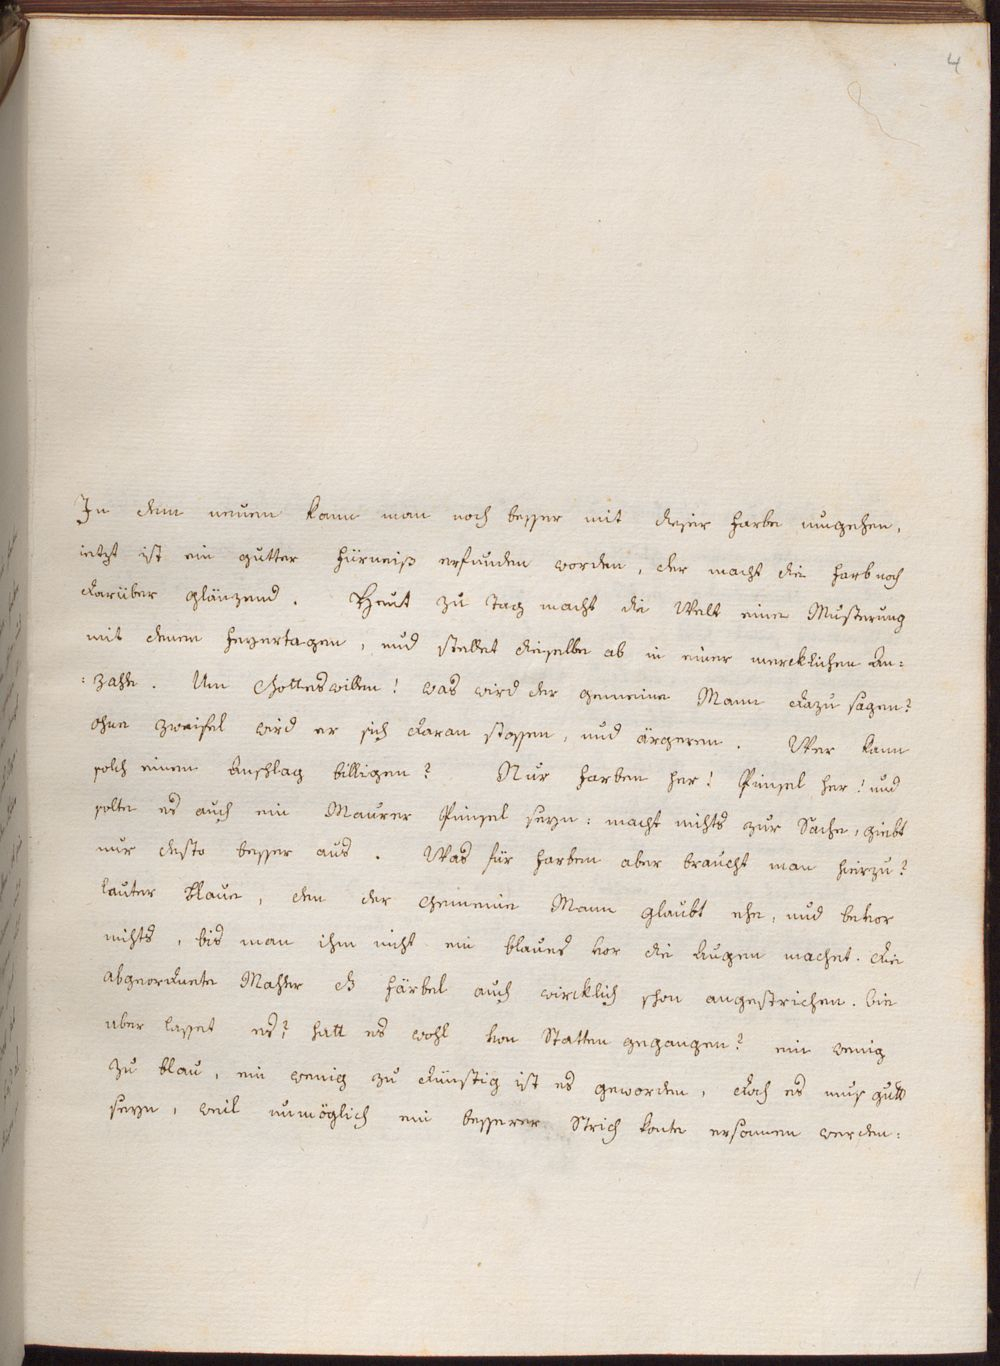 4
In dem neuem kann man noch besser mit dieser Farbe umgehen,
ietzt ist ein gutter Fürneiß erfunden worden, der macht die Farb noch
darüber glänzend. Heut zu tag macht die Welt eine Musterung
mit denen Feyertagen, und stellet dieselbe ab in einer mercklichen An:
:zahle. Um Gotteswillen! was wird der gemeine Mann dazu sagen?
ohne zweifel wird er sich daran stossen, und ärgeren. Wer kann
solch einen Anschlag billigen? Nur Farben her! Pinsel her! und
solte es auch ein Maurer Pinsel seyn: macht nichts zur Sache, giebt
nur desto besser aus. Was für Farben aber braucht man hierzu?
lauter blaue, den der gemeine Mann glaubt ehe, und bevor
nichts, bis man ihm nicht ein blaues vor die Augen machet. die
abgeordnete Mahler es färbel auch wircklich schon angestrichen. Wie
aber lasset es? hatt es wohl von Statten gegangen? ein wenig
zu blau, ein wenig zu dünstig ist es geworden, doch es mus gutt
seyn, weil unmöglich ein besserer Strich konte ersonnen werden: